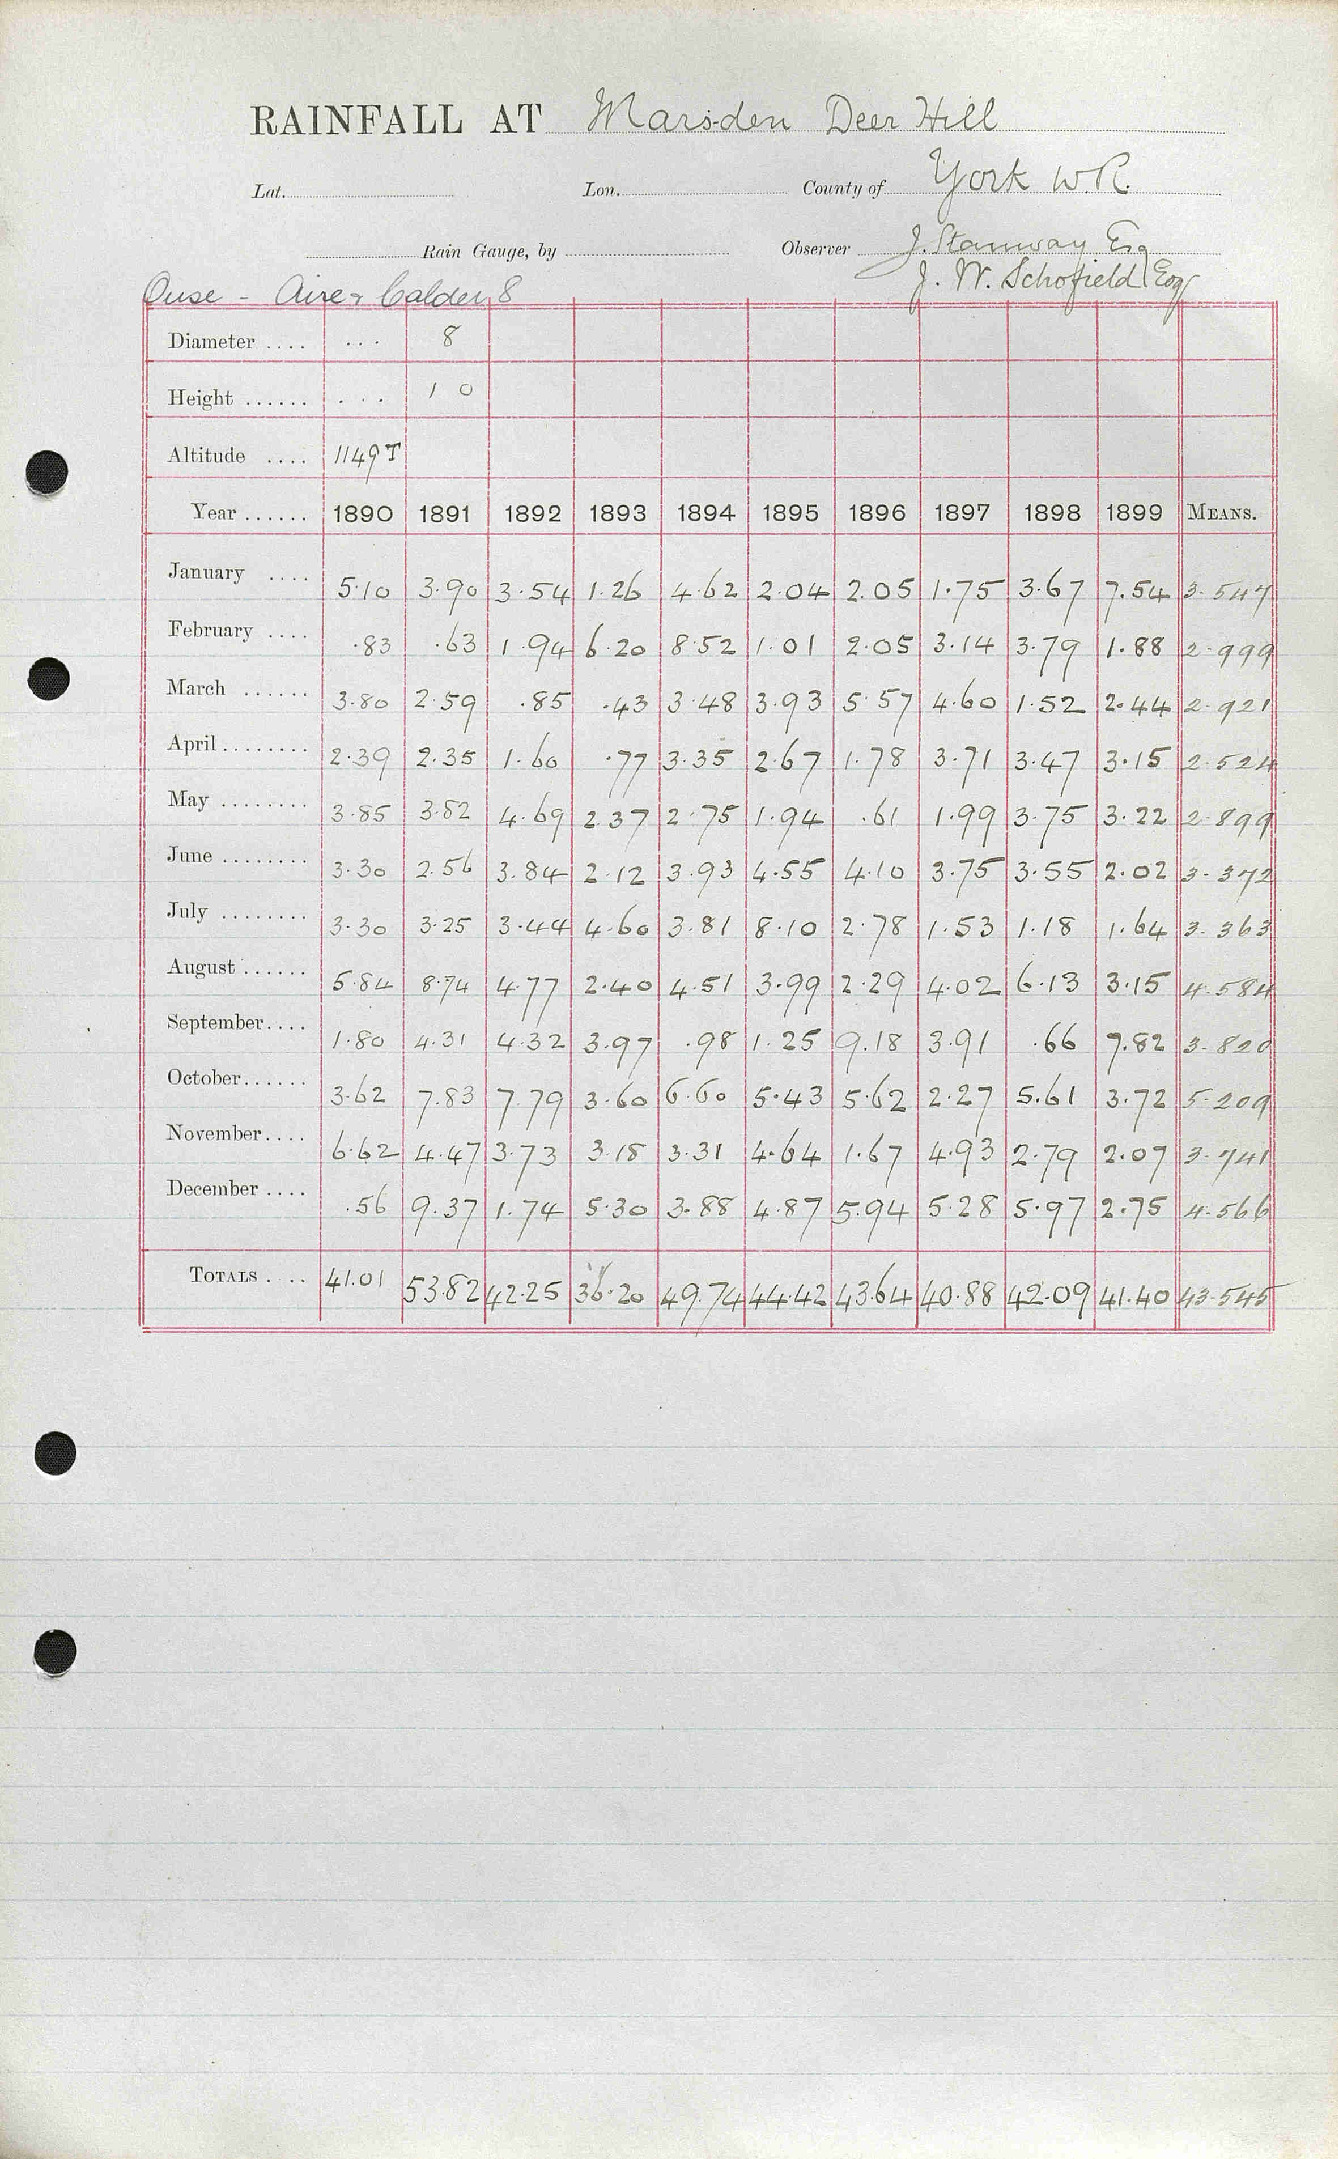 RAINFALL AT Marsden Deer Hill
Lat. Lon. County of York W.R.
Rain Gauge, by Observer J. Stanway Esq
J. W. Schofield Esq
Ouse - Aire & Calder 8
Diameter .... ... 8
Height ...... ... 1 0
Altitude .... 1149 T
Year ...... 1890 1891 1892 1893 1894 1895 1896 1897 1898 1899 MEANS.
January .... 5.10 3.90 3.54 1.26 4.62 2.04 2.05 1.75 3.67 7.54 3.547
February .... .83 .63 1.94 6.20 8.52 1.01 2.05 3.14 3.79 1.88 2.999
March ...... 3.80 2.59 .85 .43 3.48 3.93 5.57 4.60 1.52 2.44 2.921
April ........ 2.39 2.35 1.60 .77 3.35 2.67 1.78 3.71 3.47 3.15 2.524
May ........ 3.85 3.82 4.69 2.37 2.75 1.94 .61 1.99 3.75 3.22 2.899
June ........ 3.30 2.56 3.84 2.12 3.93 4.55 4.10 3.75 3.55 2.02 3.372
July ........ 3.30 3.25 3.44 4.60 3.81 8.10 2.78 1.53 1.18 1.64 3.363
August ...... 5.84 8.74 4.77 2.40 4.51 3.99 2.29 4.02 6.13 3.15 4.584
September.... 1.80 4.31 4.32 3.97 .98 1.25 9.18 3.91 .66 7.82 3.820
October...... 3.62 7.83 7.79 3.60 6.60 5.43 5.62 2.27 5.61 3.72 5.209
November.... 6.62 4.47 3.73 3.18 3.31 4.64 1.67 4.93 2.79 2.07 3.741
December .... .56 9.37 1.74 5.30 3.88 4.87 5.94 5.28 5.97 2.75 4.566
TOTALS .... 41.01 53.82 42.25 36.20 49.74 44.42 43.64 40.88 42.09 41.40 43.545